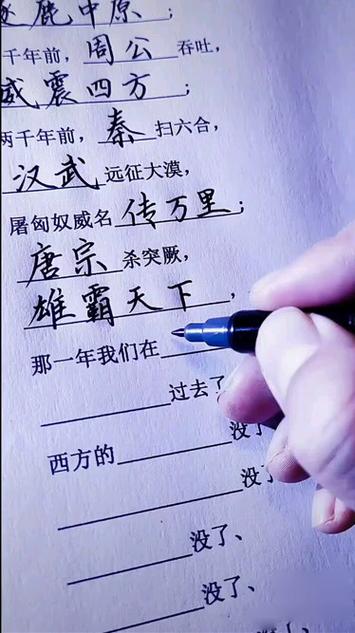 逐鹿中原；
千年前，周公吞吐，
威震四方；
两千年前，秦扫六合，
汉武远征大漠，
屠匈奴威名传万里；
唐宗杀突厥，
雄霸天下，
那一年我们在
过去了
西方的没了
没了
没了、
没了、